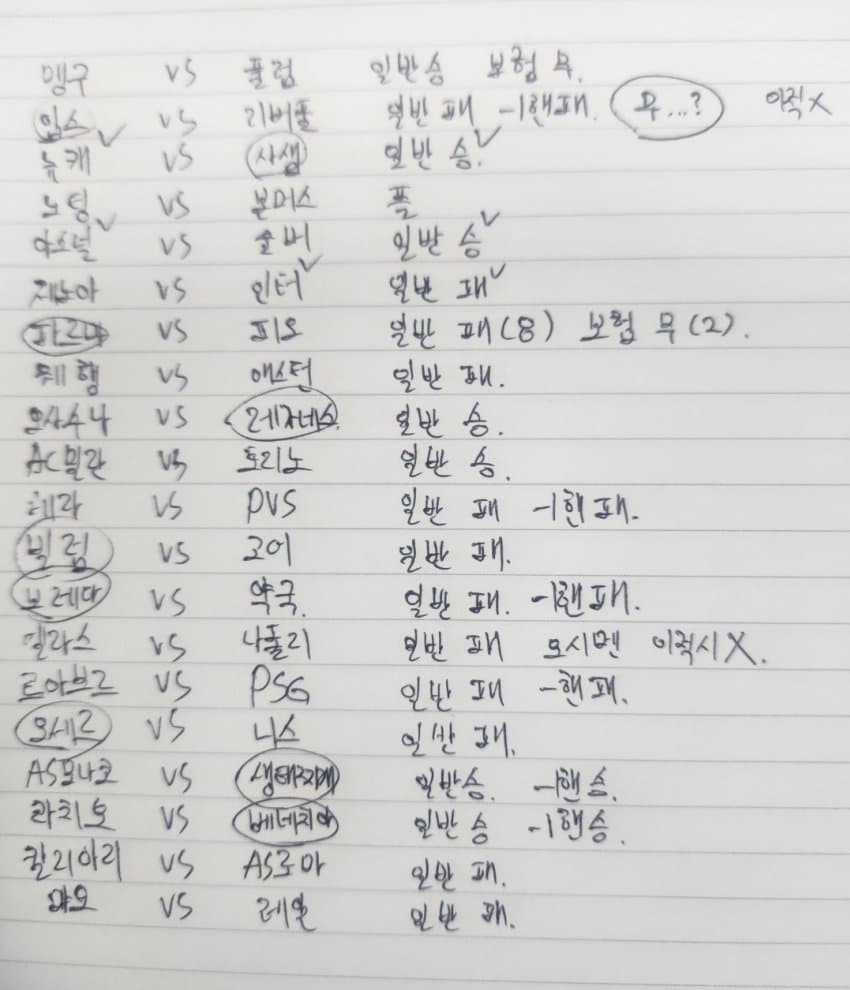 맹구 VS 풀럼 일반승 보험 무.
입스 VS 리버풀 일반 패 -1핸패. 무...? 이적X
뉴캐 VS 사샘 일반 승.
노팅 VS 본머스 플
아스널 VS 울버 일반 승
제노아 VS 인터 일반 패
파르마 VS 피오 일반 패(8) 보험 무(2).
웨햄 VS 애스턴 일반 패.
오사수나 VS 레가네스. 일반 승.
AC밀란 VS 토리노 일반 승.
헤라 VS PVS 일반 패 -1핸패.
빌럼 VS 고어 일반 패.
브레다 VS 약국. 일반 패. -1핸패.
헬라스 VS 나폴리 일반 패 오시멘 이적시X.
르아브르 VS PSG 일반 패 -핸패.
오세르 VS 니스 일반 패.
AS모나코 VS 생태찌개 일반승. -1핸승.
라치오 VS 베네치아 일반승 -1핸승.
칼리아리 VS AS로마 일반 패.
마요 VS 레알 일반 패.